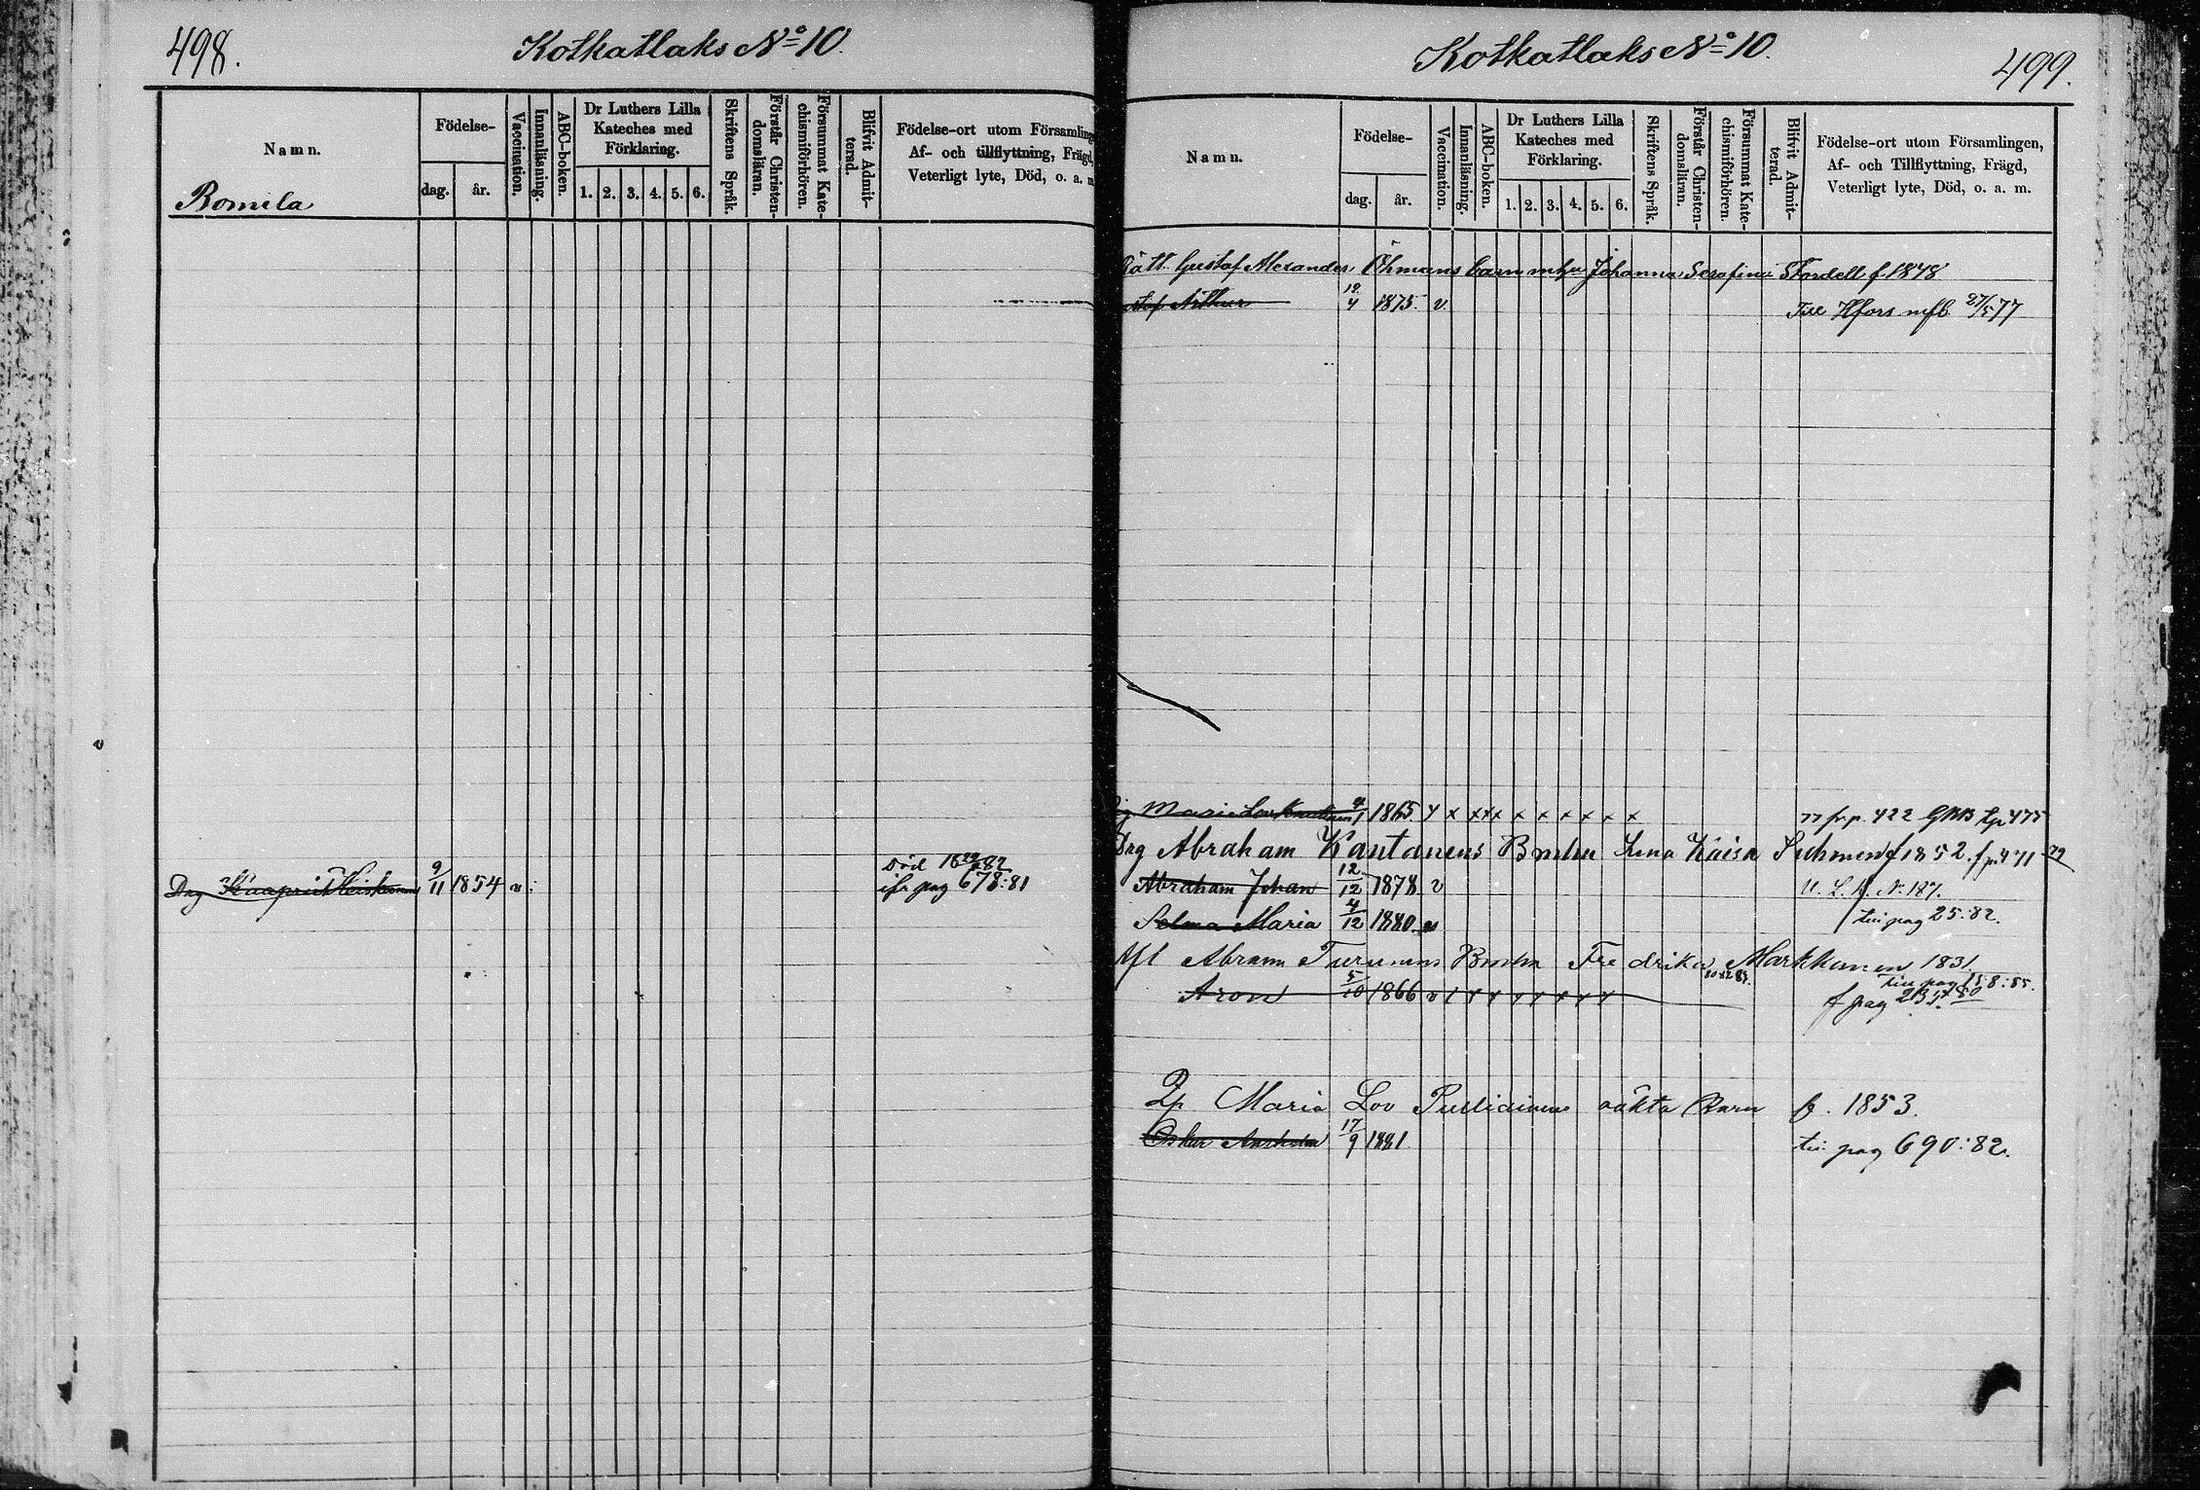 498.
Kotkatlaks No 10.
Namn.
Födelse-
dag.
år.
Vaccination.
Innanläsning.
ABC-boken.
Dr Luthers Lilla
Kateches med
Förklaring.
1. 2. 3. 4. 5. 6.
Skriftens Språk.
Förstår Christen-
domsläran.
Försummat Kate-
chismiförhören.
Blifvit Admit-
terad.
Födelse-ort utom Församling
Af- och tillflyttning, Frägd,
Veterligt lyte, Död, o. a. m
Romila
Död 82
Drg 9/11 1854 v. ifr pag 678:81
Kotkatlaks No 10.
499.
Namn.
Födelse-
dag.
år.
Vaccination.
Innanläsning.
ABC-boken.
Dr Luthers Lilla
Kateches med
Förklaring.
1. 2. 3. 4. 5. 6.
Skriftens Språk.
Förstår Christen-
domsläran.
Försummat Kate-
chismiförhören.
Blifvit Admit-
terad.
Födelse-ort utom Församlingen,
Af- och Tillflyttning, Frägd,
Veterligt lyte, Död, o. a. m.
Gustaf Alexander Öhmans barn mhu Johanna Serafina Fordell f. 1848
Arthur 12/4 1875. v. Till Hfors mfb 27/5 77
Maria Lov 4/1 1865 x x x x x x x x x x x fr p. 422
Drg Abraham Kautanens Bmhu Lena Kaisa Suhonen f 1852. f p 471 79
Abraham Johan 12/12 1878 v U. L. K. No 187.
Selma Maria 4/12 1880 v till pag 25:82.
Abram Turunens Bmhu Fredrika Markkanen 1831.
till pag 158:85.
Aron 5/10 1866 v f pag
Maria Lov oäkta Barn f. 1853.
Oskar 17/9 1881 till pag 690:82.